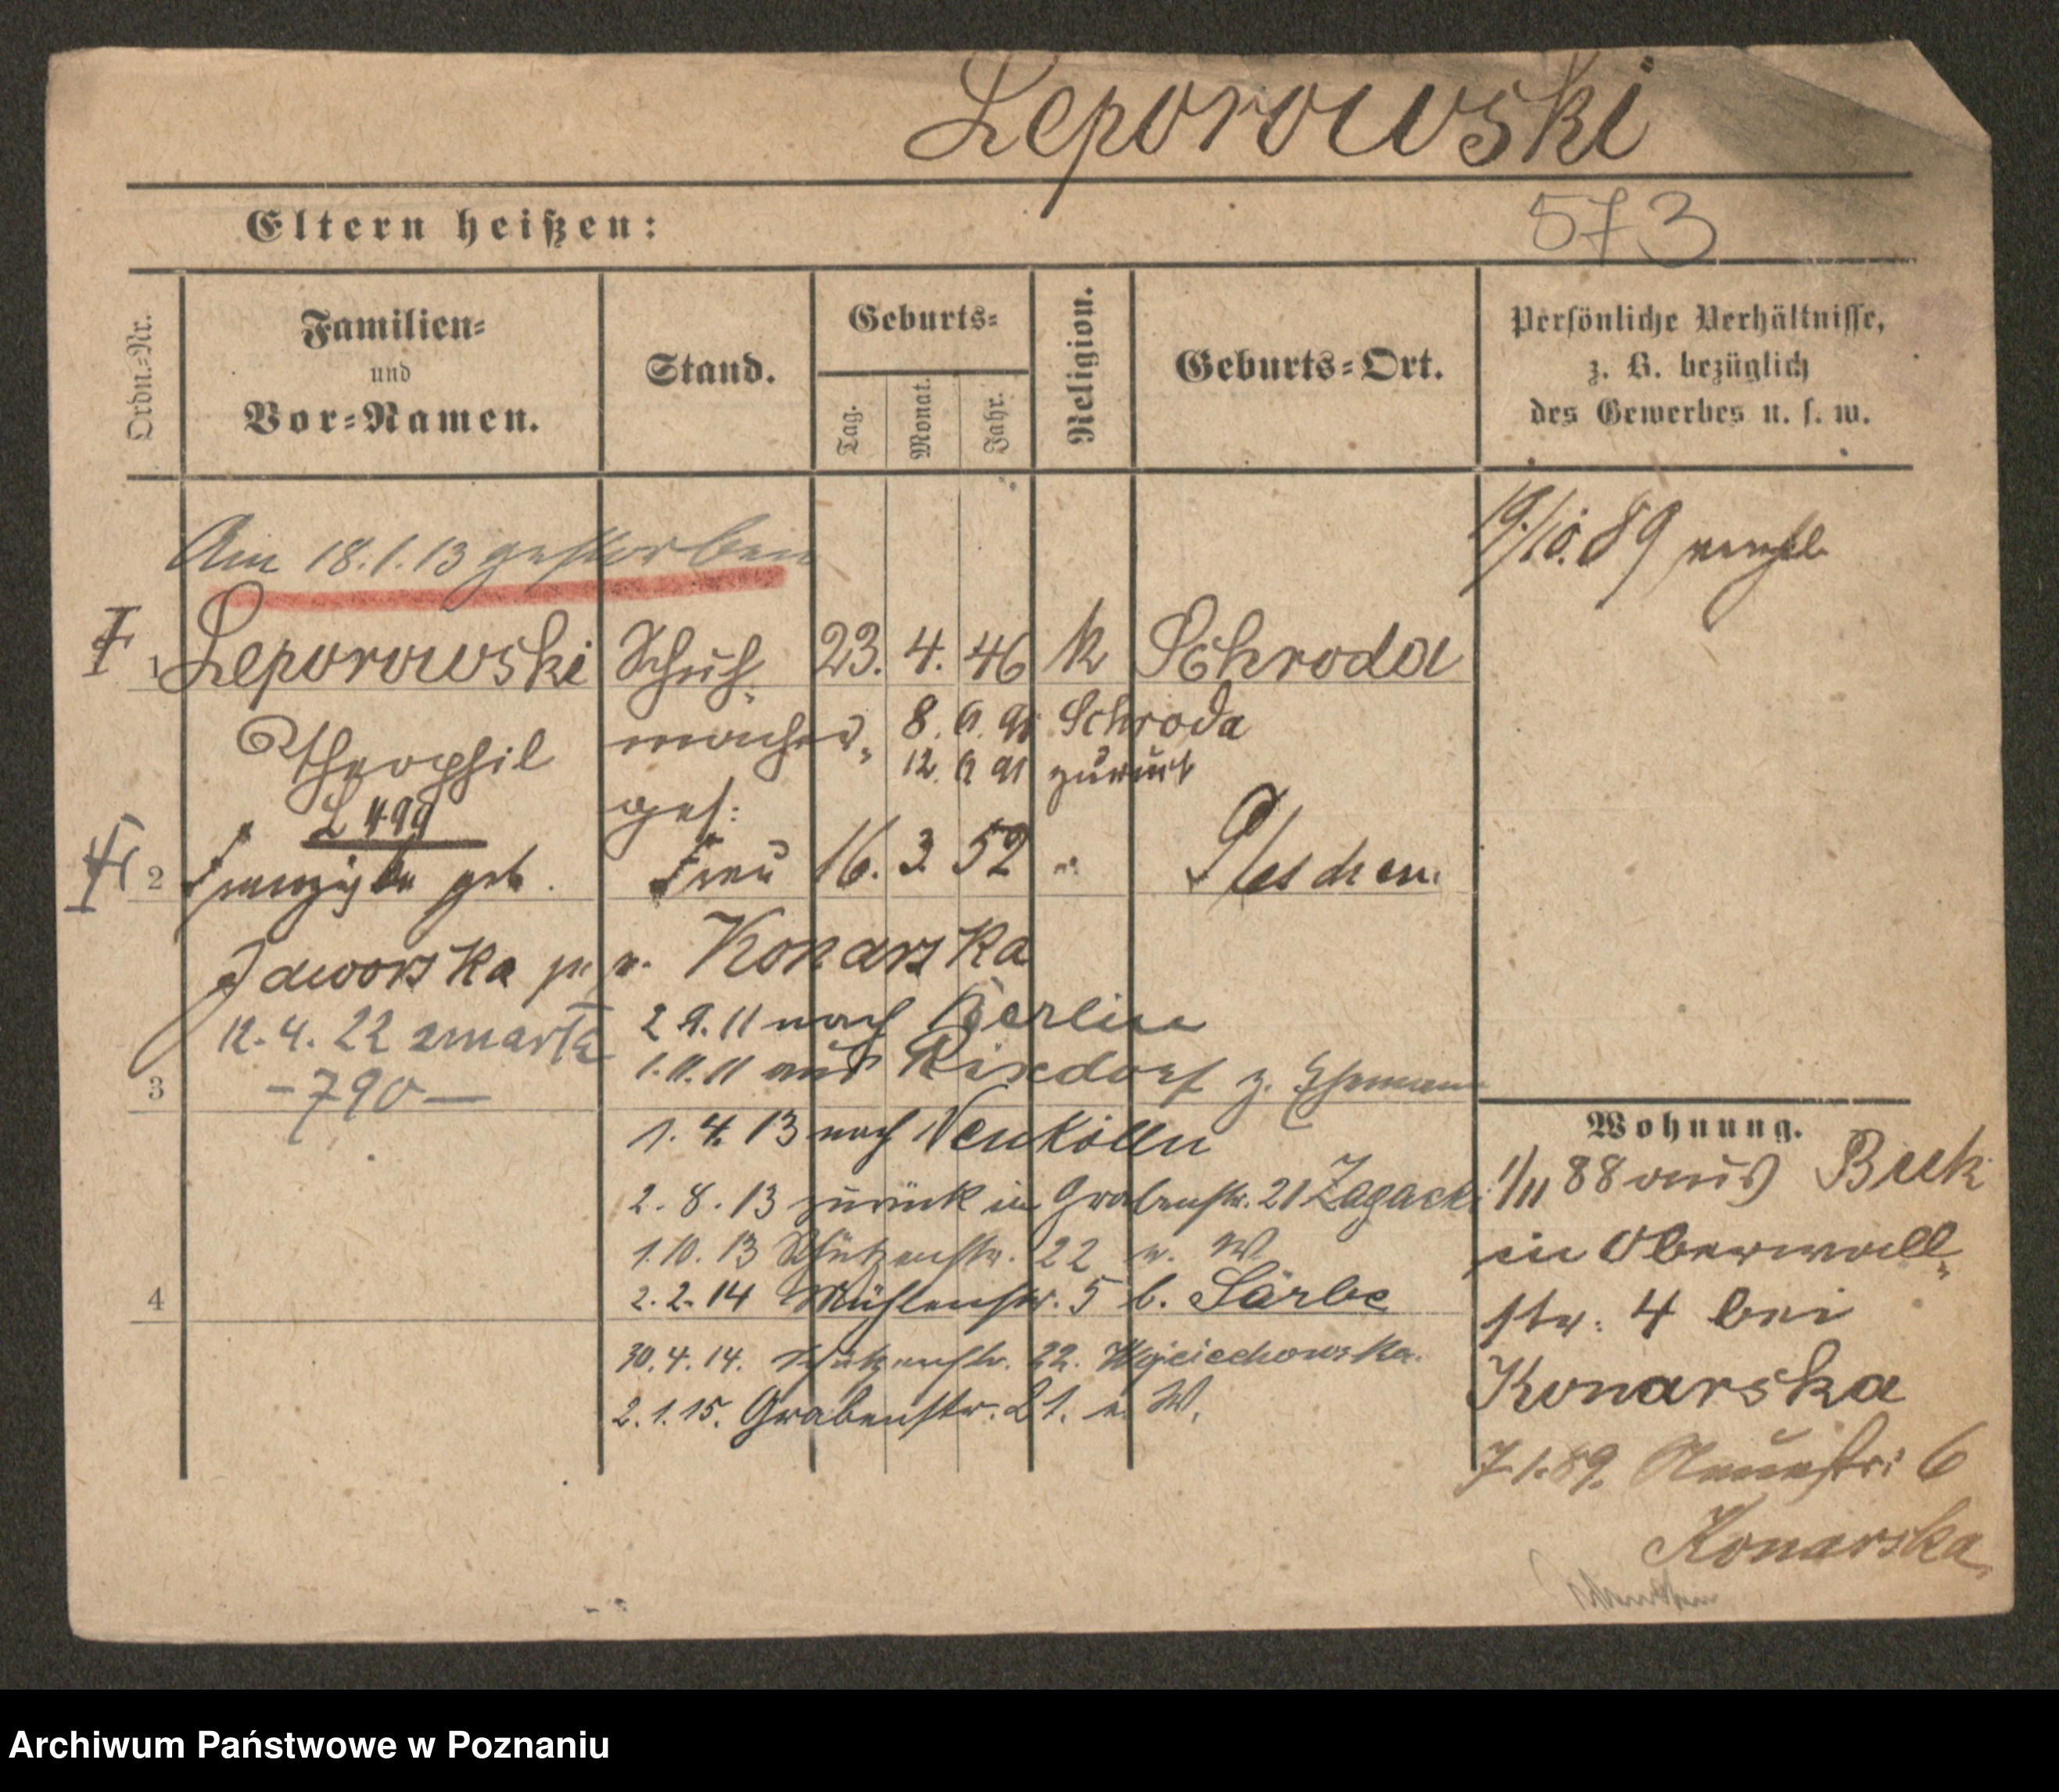 Leporowski
Eltern heißen:
573
Ordn.-Nr.
Familien-
und
Vor-Namen.
Stand.
Geburts-
Tag.
Monat.
Jahr.
Religion.
Geburts-Ort.
Persönliche Verhältnisse,
z. B. bezüglich
des Gewerbes u. s. w.
Am 18.1.13 gestorben
19./10. 89
1 Leporowski Schuh- 23. 4. 46 k Schroda
Theophil macher-
ges:
8. 9. 91 Schroda
12. 9 91 zurück
L 499
2 Franziska geb. Frau 16. 3 52 " Pleschen
Jaworska Konarska
12.4.22 zmarła
-790-
2 9. 11 nach Berlin
1.11.11 aus Rixdorf z. Ehemann
3
1. 4. 13 nach Neukölln
2. 8. 13 zurück in Grabenstr. 21 Zagacki
1.10. 13 Schützenstr. 22 e. W
4
2. 2. 14 Mühlenstr. 5 b. Särbe
30. 4. 14. Schützenstr. 22. Wojciechowska.
2. 1. 15. Grabenstr. 21. e. W.
Wohnung.
1/11 88 aus Buk
in Oberwall-
str. 4 bei
Konarska
7.1.89. Neuestr: 6
Konarska
Archiwum Państwowe w Poznaniu